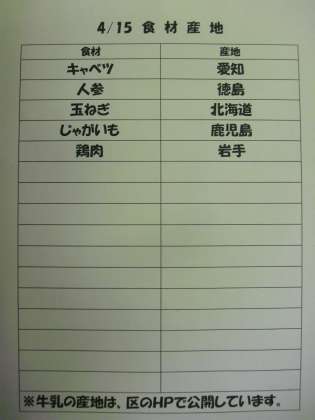 4/15 食材産地
食材 産地
キャベツ 愛知
人参 徳島
玉ねぎ 北海道
じゃがいも 鹿児島
鶏肉 岩手
※牛乳の産地は、区のHPで公開しています。